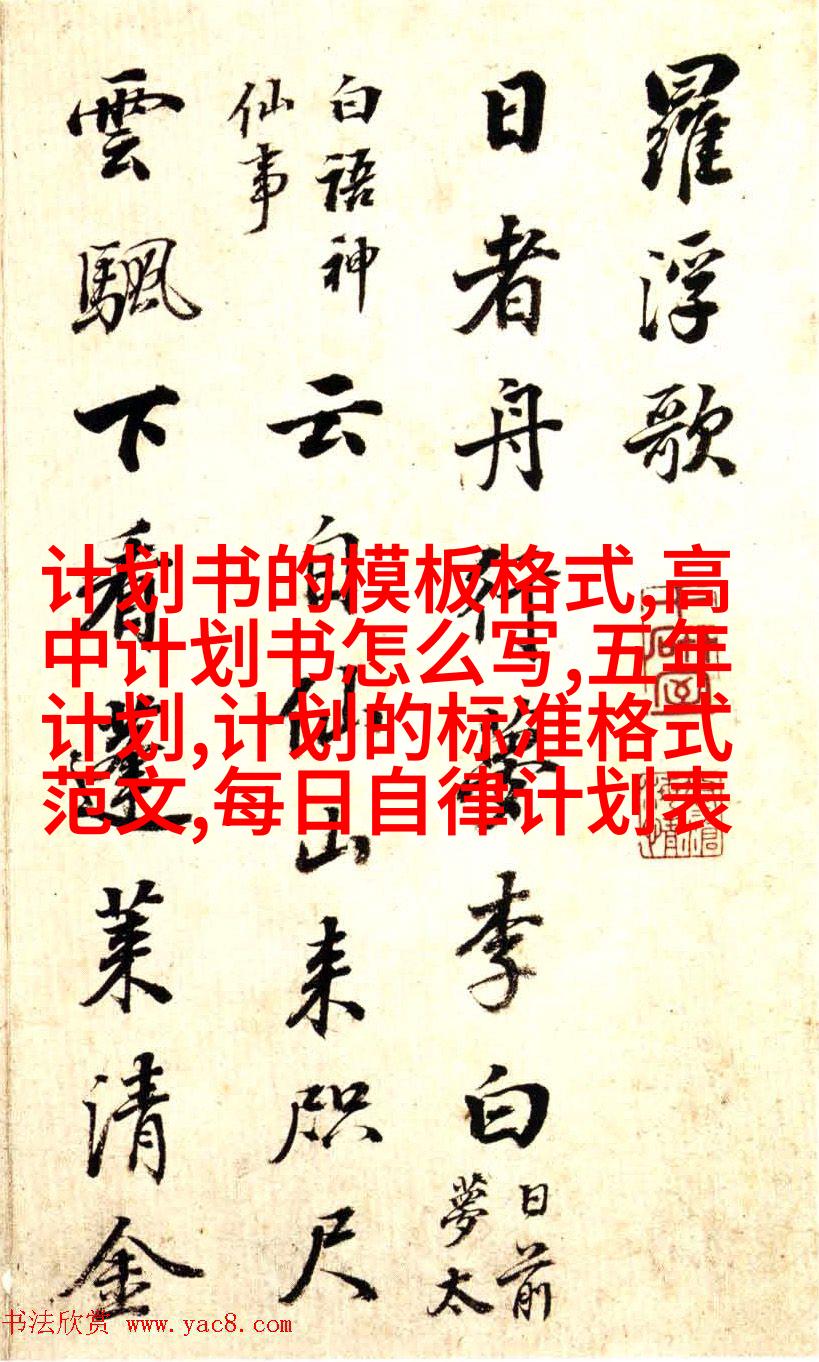 羅浮歌
日者舟行夢李白
日前夢太
白語神仙事
云自仙山来咫尺
雲颿下看蓬莱清金
计划书的模板格式,高
中计划书怎么写,五年
计划,计划的标准格式
范文,每日自律计划表
书法欣赏 www.yac8.com